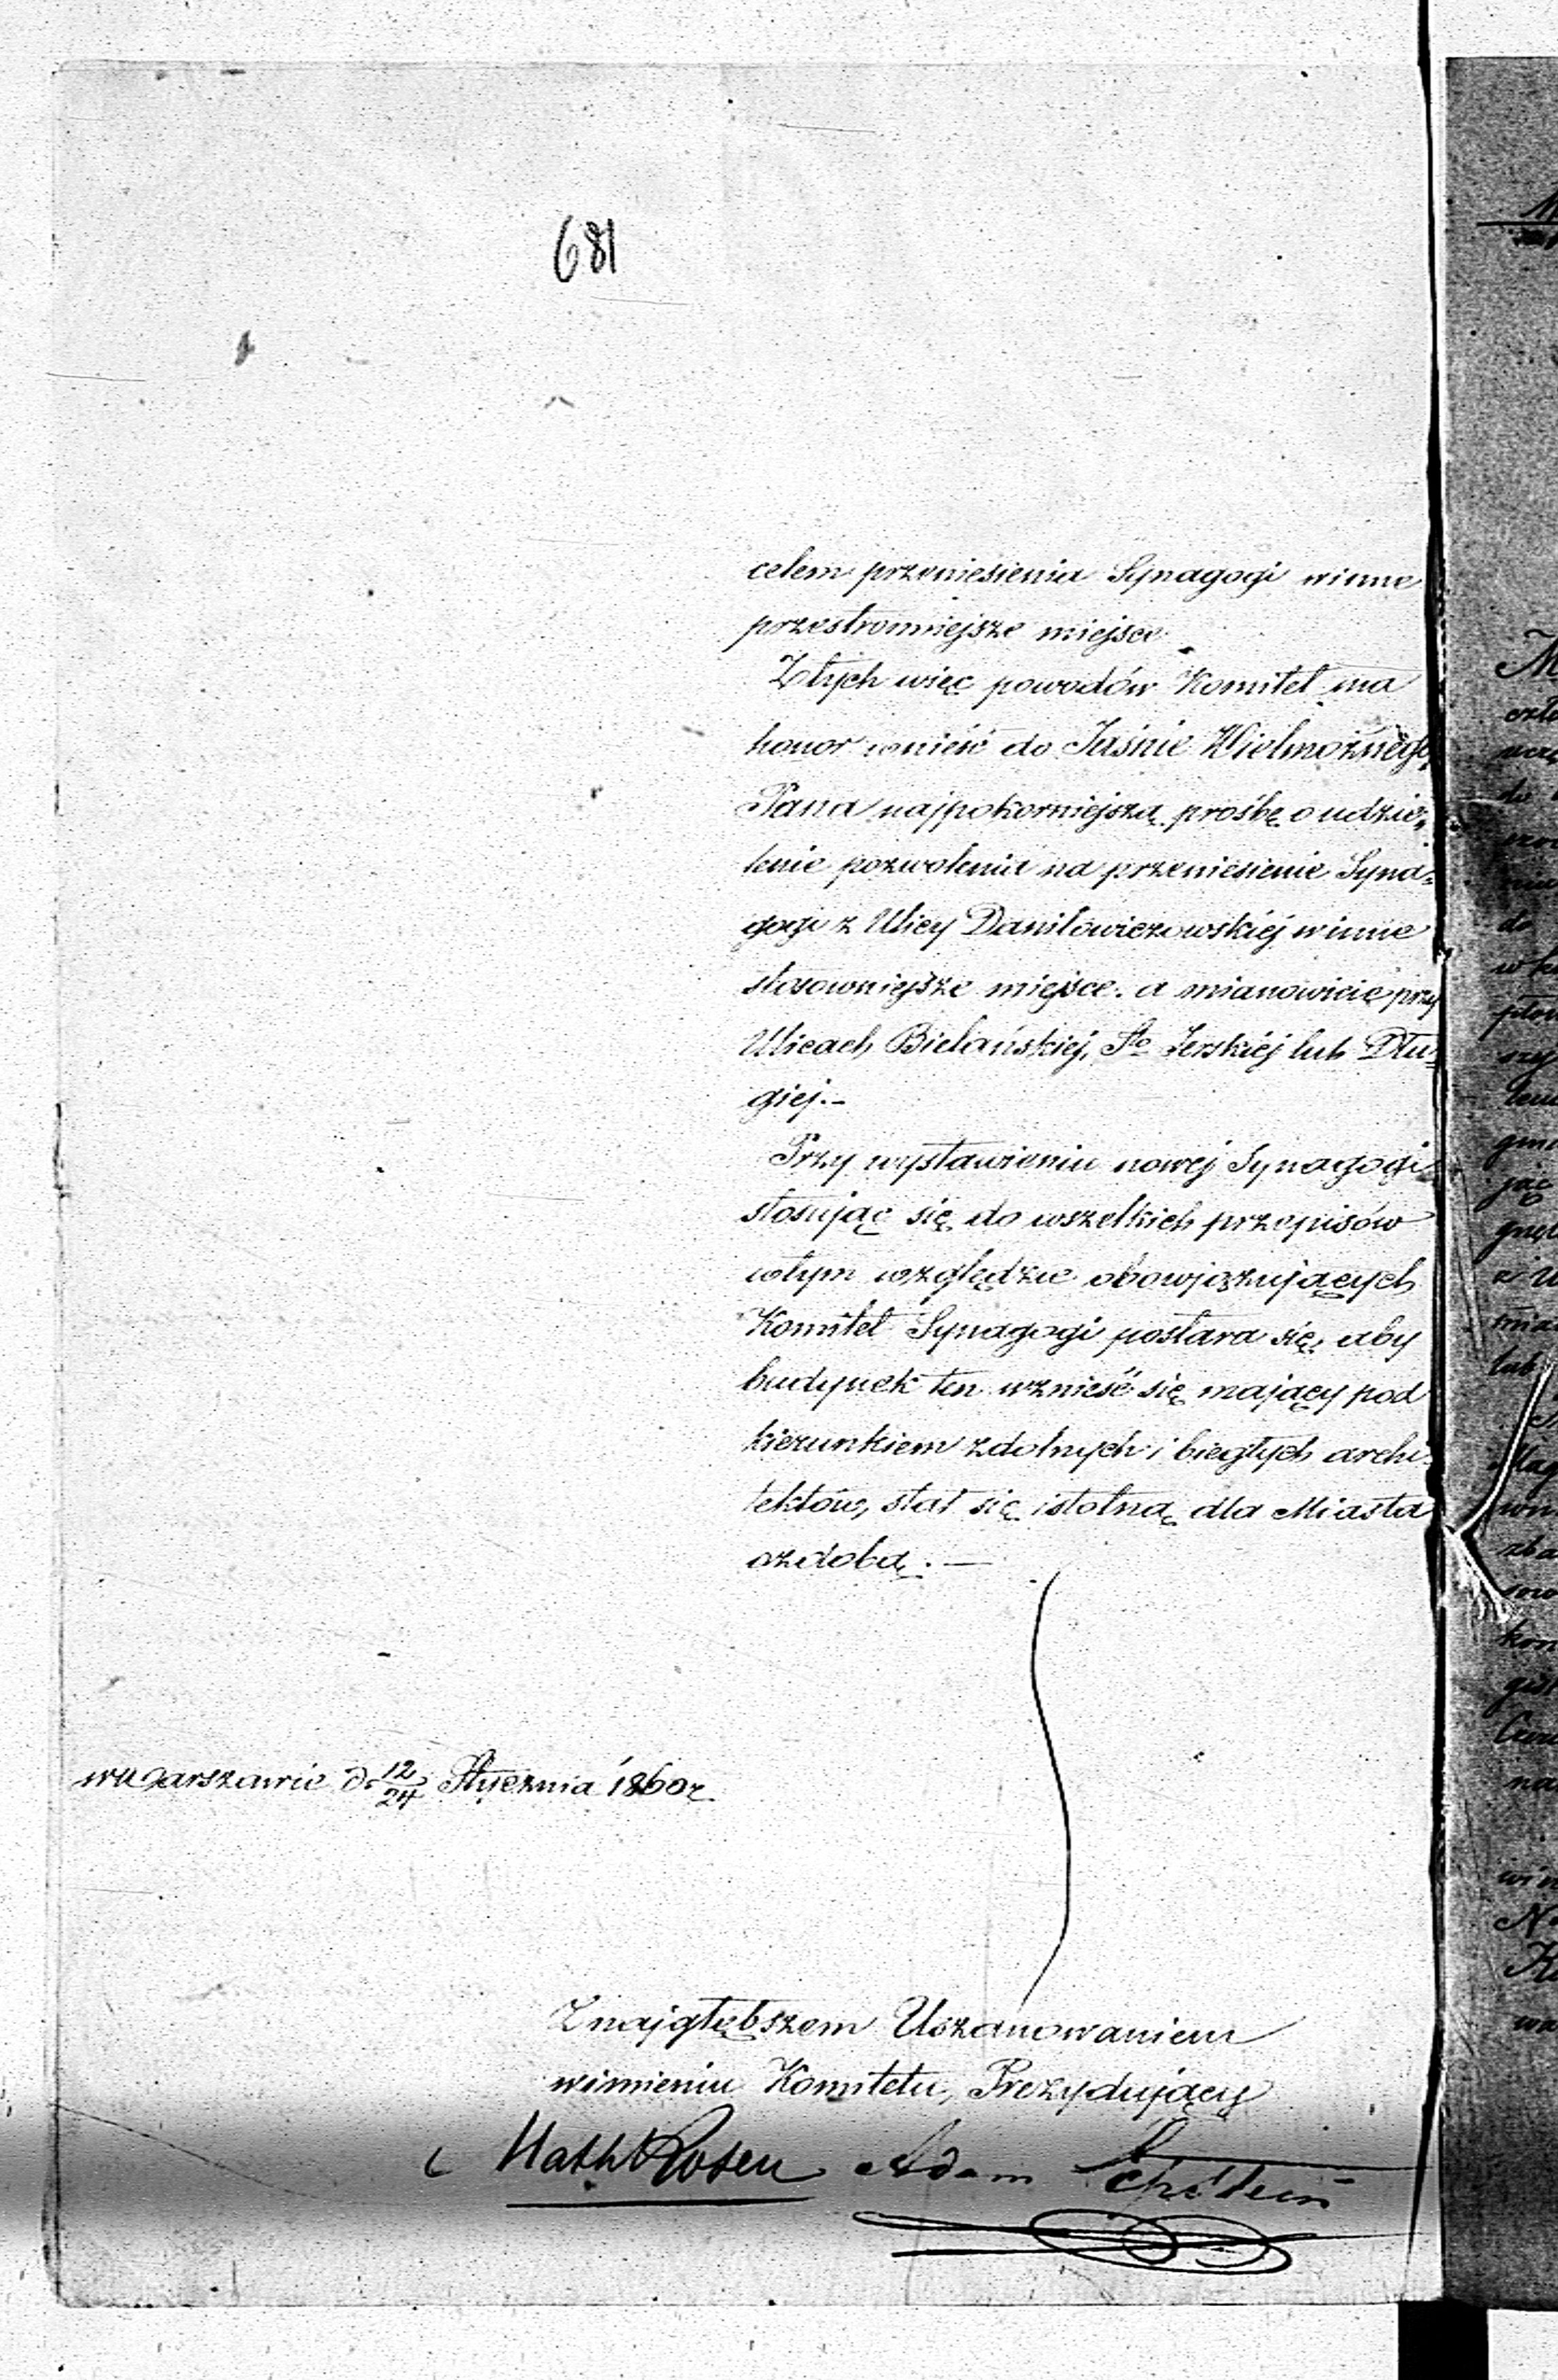 681
celem przeniesienia Synagogi winne
przestronniejsze miejsce.
Ztych więc powodów Komitet ma
honor wnieść do Jaśnie Wielmożnego
Pana najpokorniejszą prośbę o udzie„
lenie pozwolenia na przeniesienie Syna„
gogi z Ulicy Daniłowiczowskiéj winne
stosowniejsze miejsce. a mianowicie przy
Ulicach Bielańskiej, Sto Jerskiéj lub Dłu„
giej.—
Przy wystawieniu nowej Synagogi
stosując się do wszelkich przepisów
wtym względzie obowjązujących
Komitet Synagogi postara się, aby
budynek ten wznieść się mający pod
kierunkiem zdolnych i biegłych archi„
tektów, stał się istotną dla Miasta
ozdobą.—
w Warszawie d. 12/24 Stycznia 1860 r.
Z najgłębszem Uszanowaniem
wimieniu Komitetu, Prezydujący
Math Rosen Adam Epstein